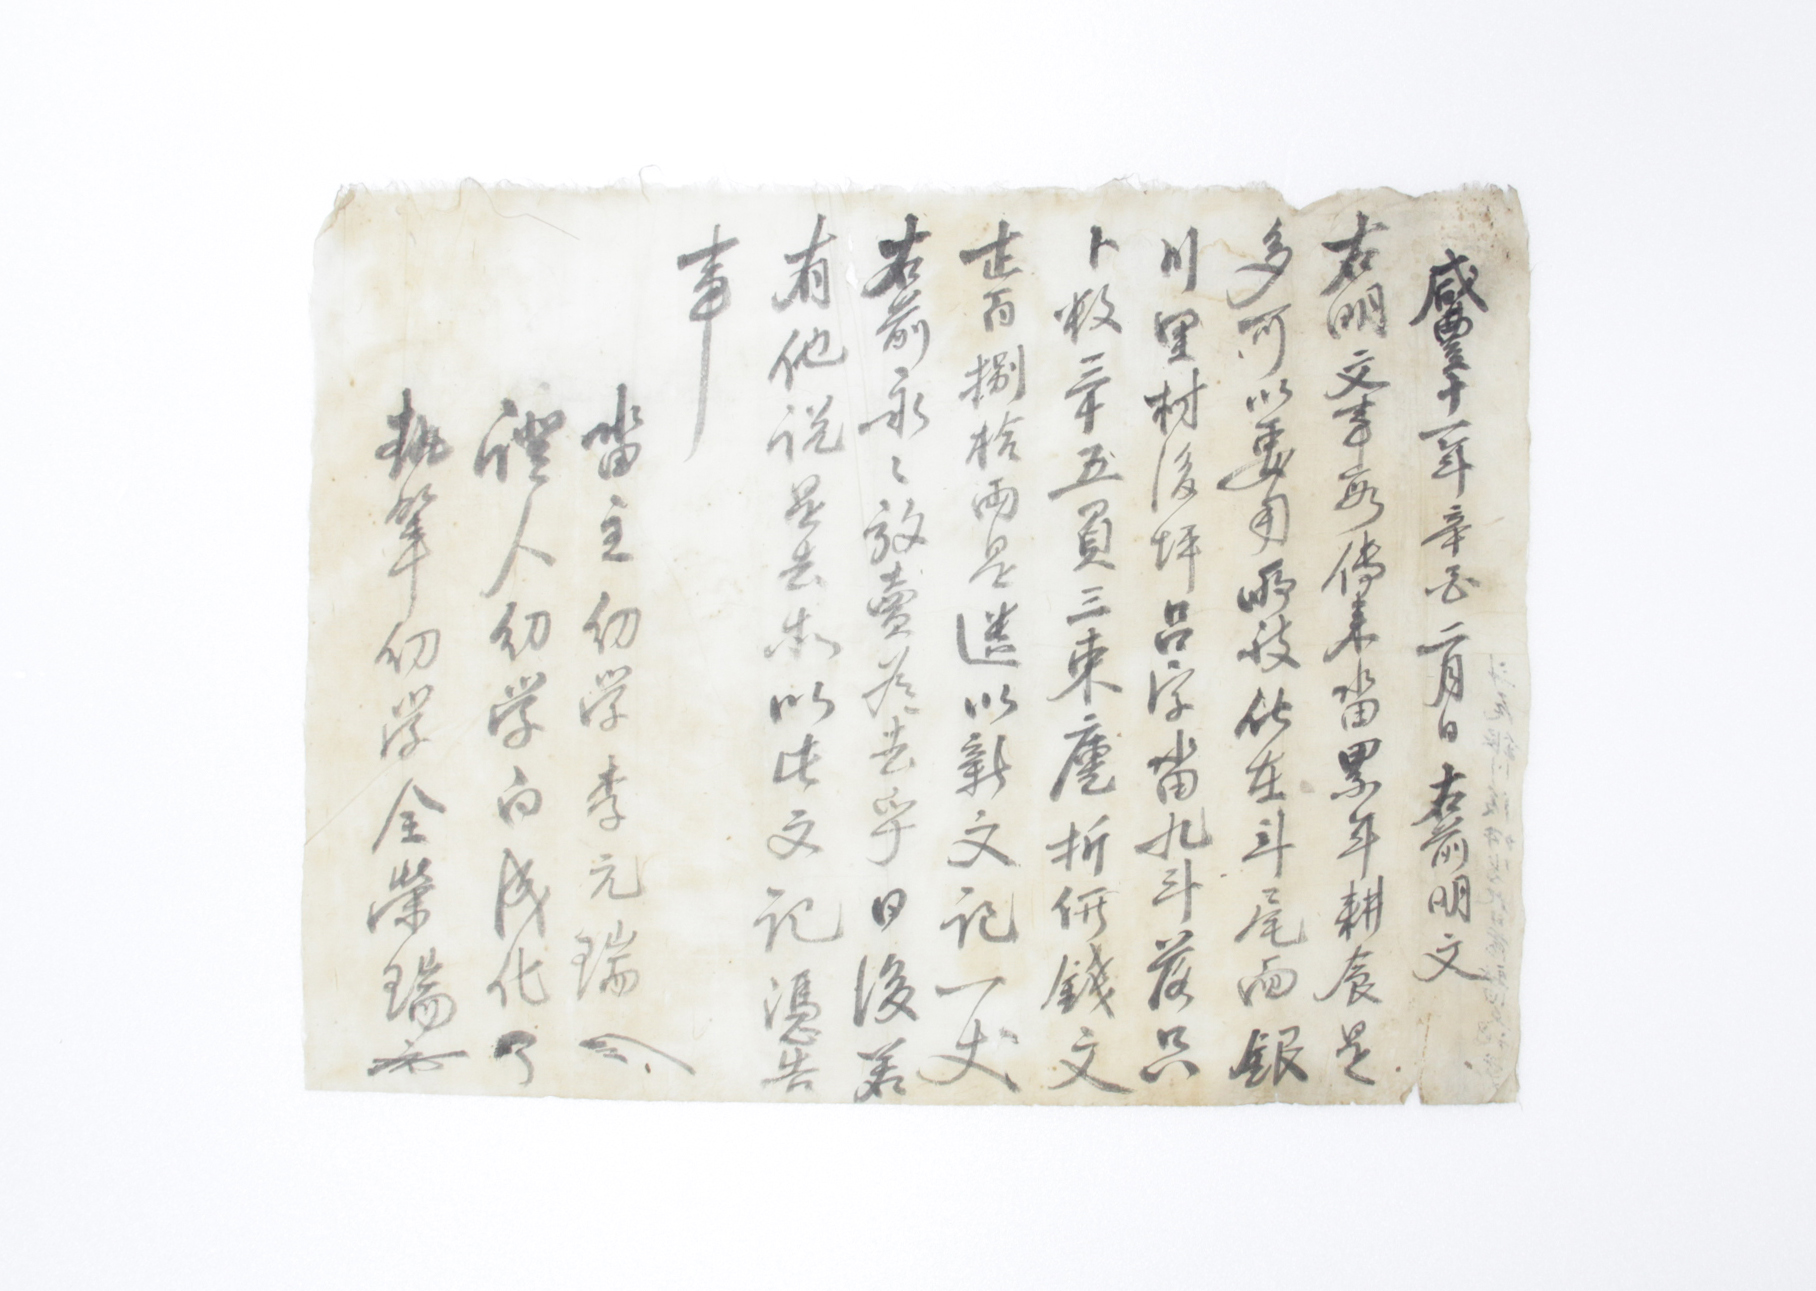 咸豊十一年辛酉二月日 右前明文
右明文事段傳来畓累年耕食是
多可以要用所致伏在斗尾面銀
川里村後坪呂字畓九斗落只
卜数三十五負三束廤折価錢文
壱百捌拾両是遣以新文記一丈
右前永々放賣為去乎日後若
有他説是去等以此文記憑告
事
畓主幼学李元瑞
證人幼学白成化
執筆幼学全榮瑞